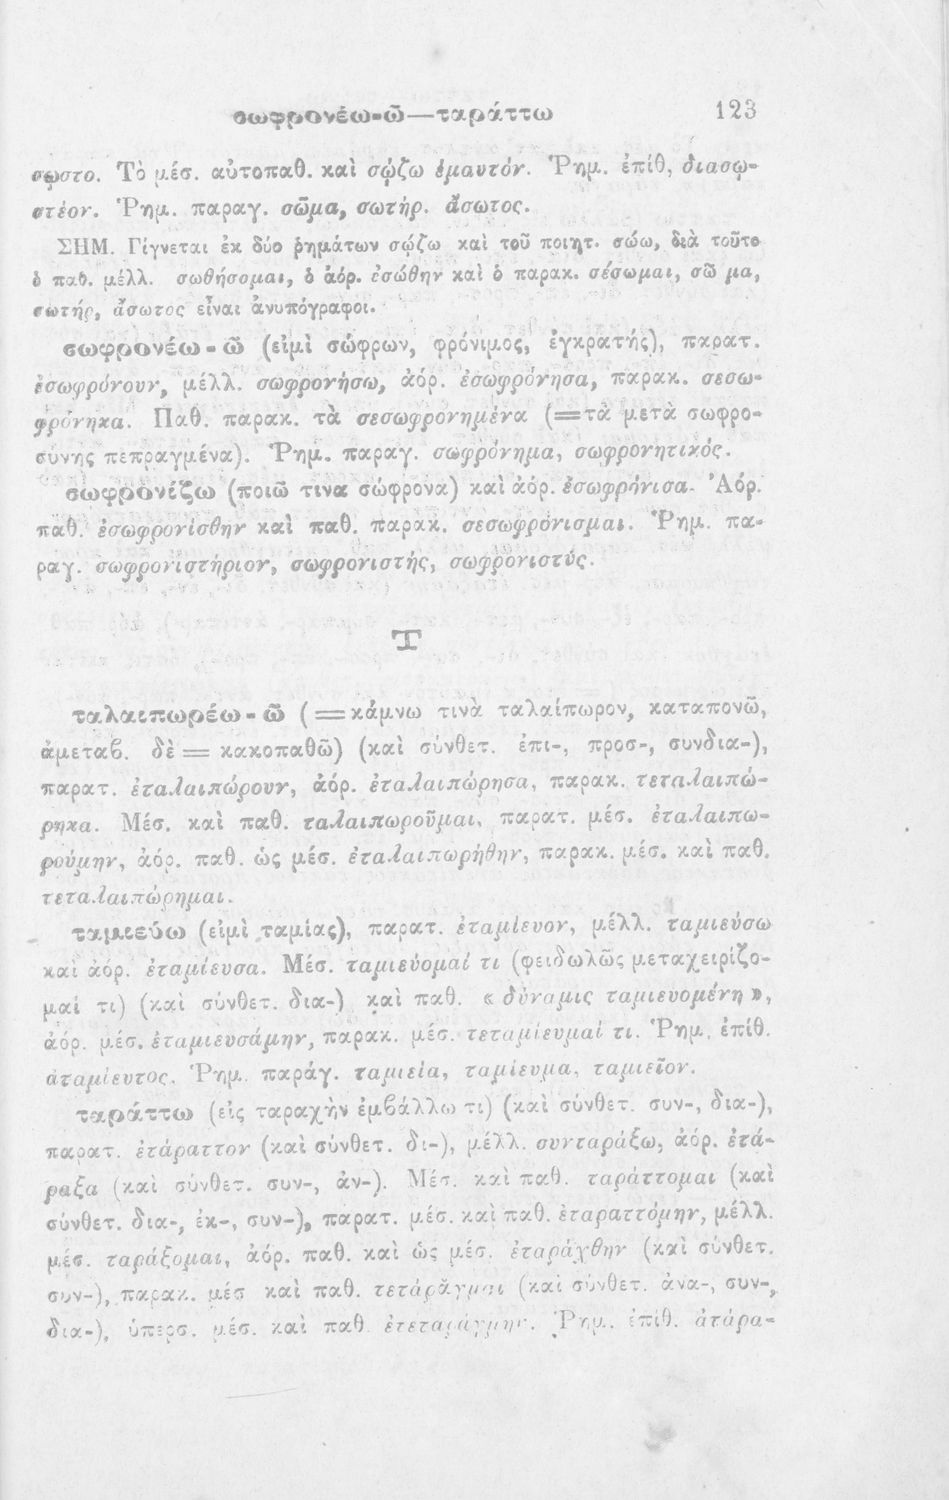 σωφρονέω-ῶ—ταράττω 123
σῳστο. Τὸ μέσ. αὐτοπαθ. καὶ σῴζω ἐμαυτόν. Ῥημ. ἐπίθ, διασῳ-
στέον. Ῥημ. παραγ. σῶμα, σωτήρ. ἄσωτος.
ΣΗΜ. Γίγνεται ἐκ δύο ῥημάτων σῴζω καὶ τοῦ ποιητ. σώω, διὰ τοῦτο
ὁ παθ. μέλλ. σωθήσομαι, ὁ ἀόρ. ἐσώθην καὶ ὁ παρακ. σέσωμαι, σῶ μα,
σωτήρ, ἄσωτος εἶναι ἀνυπόγραφοι.
σωφρονέω-ῶ (εἰμὶ σώφρων, φρόνιμος, ἐγκρατής), παρατ.
ἐσωφρόνουν, μέλλ. σωφρονήσω, ἀόρ. ἐσωφρόνησα, παρακ. σεσω-
φρόνηκα. Παθ. παρακ. τὰ σεσωφρονημένα (=τὰ μετὰ σωφρο-
σύνης πεπραγμένα). Ῥημ. παραγ. σωφρόνημα, σωφρονητικός.
σωφρονίζω (ποιῶ τινα σώφρονα) καὶ ἀόρ. ἐσωφρόνισα. Ἀόρ.
παθ. ἐσωφρονίσθην καὶ παθ. παρακ. σεσωφρόνισμαι. Ῥημ. πα-
ραγ. σωφρονιστήριον, σωφρονιστής, σωφρονιστύς.
Τ
ταλαιπωρέω-ῶ (=κάμνω τινὰ ταλαίπωρον, καταπονῶ,
ἀμεταβ. δὲ = κακοπαθῶ) (καὶ σύνθετ. ἐπι-, προσ-, συνδια-),
παρατ. ἐταλαιπώρουν, ἀόρ. ἐταλαιπώρησα, παρακ. τεταλαιπώ-
ρηκα. Μέσ. καὶ παθ. ταλαιπωροῦμαι, παρατ. μέσ. ἐταλαιπω-
ρούμην, ἀόρ. παθ. ὡς μέσ. ἐταλαιπωρήθην, παρακ. μέσ. καὶ παθ.
τεταλαιπώρημαι.
ταμιεύω (εἰμὶ ταμίας), παρατ. ἐταμίευον, μέλλ. ταμιεύσω
καὶ ἀόρ. ἐταμίευσα. Μέσ. ταμιεύομαί τι (φειδωλῶς μεταχειρίζο-
μαί τι) (καὶ σύνθετ. δια-) καὶ παθ. « δύναμις ταμιευομένη »,
ἀόρ. μέσ. ἐταμιευσάμην, παρακ. μέσ. τεταμίευμαί τι. Ῥημ. ἐπίθ.
ἀταμίευτος. Ῥημ. παράγ. ταμιεία, ταμίευμα, ταμιεῖον.
ταράττω (εἰς ταραχὴν ἐμβάλλω τι) (καὶ σύνθετ. συν-, δια-),
παρατ. ἐτάραττον (καὶ σύνθετ. δι-), μέλλ. συνταράξω, ἀόρ. ἐτά-
ραξα (καὶ σύνθετ. συν-, ἀν-). Μέσ. καὶ παθ. ταράττομαι (καὶ
σύνθετ. δια-, ἐκ-, συν-), παρατ. μέσ. καὶ παθ. ἐταραττόμην, μέλλ.
μέσ. ταράξομαι, ἀόρ. παθ. καὶ ὡς μέσ. ἐταράχθην (καὶ σύνθετ.
συν-), παρακ. μέσ καὶ παθ. τετάραγμαι (καὶ σύνθετ. ἀνα-, συν-,
δια-), ὑπερσ. μέσ. καὶ παθ. ἐτεταράγμην. Ῥημ. ἐπίθ. ἀτάρα-